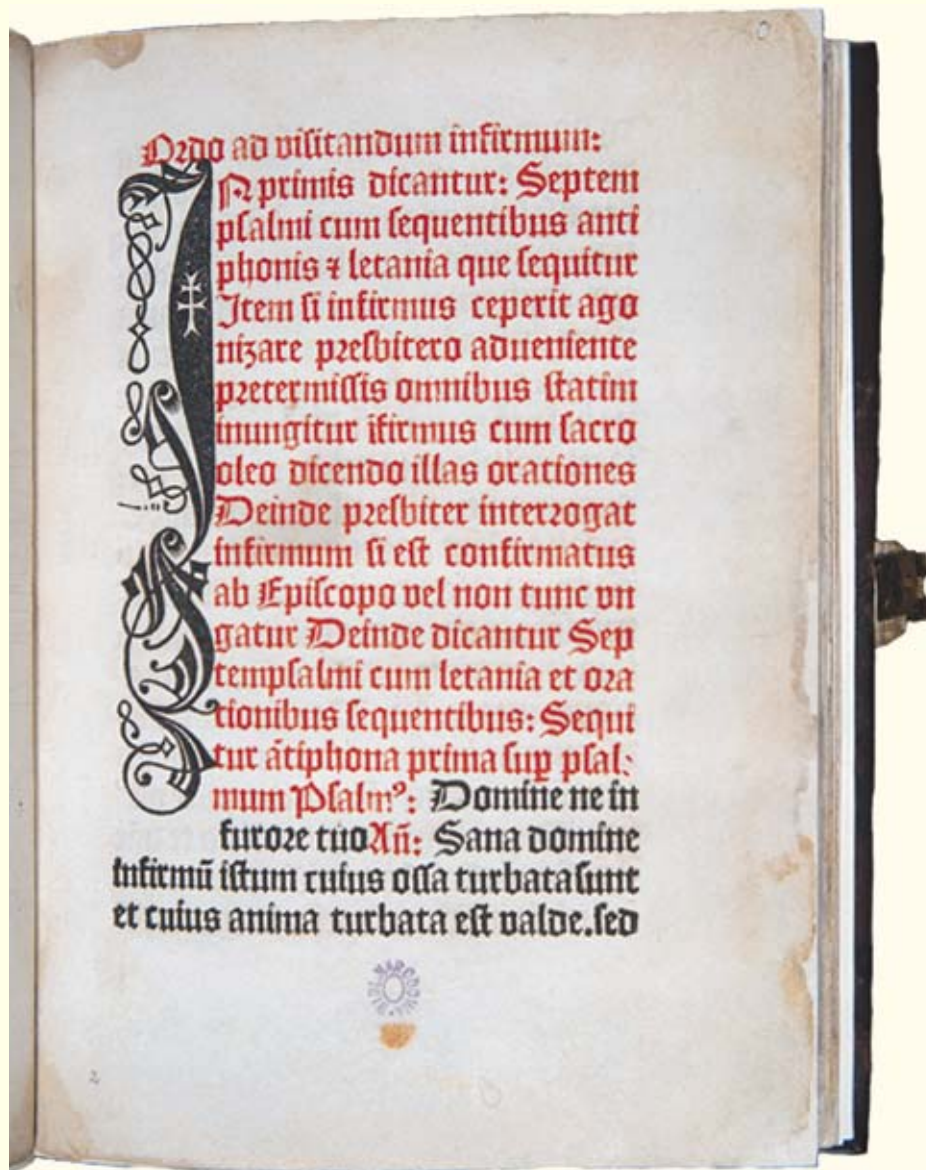 Ordo ad visitandum infirmum:
IN primis dicantur: Septem
psalmi cum sequentibus anti
phonis ⁊ letania que sequitur
Item si infirmus ceperit ago
nizare presbitero adueniente
pretermissis omnibus statim
inungitur ĩfirmus cum sacro
oleo dicendo illas orationes
Deinde presbiter interrogat
infirmum si est confirmatus
ab Episcopo vel non tunc vn
gatur Deinde dicantur Sep
tempsalmi cum letania et ora
tionibus sequentibus: Sequi
tur ãtiphona prima suꝑ psal:
mum Psalmꝰ: Domine ne in
furore tuo Añ: Sana domine
infirmũ istum cuius ossa turbata sunt
et cuius anima turbata est valde. sed
2